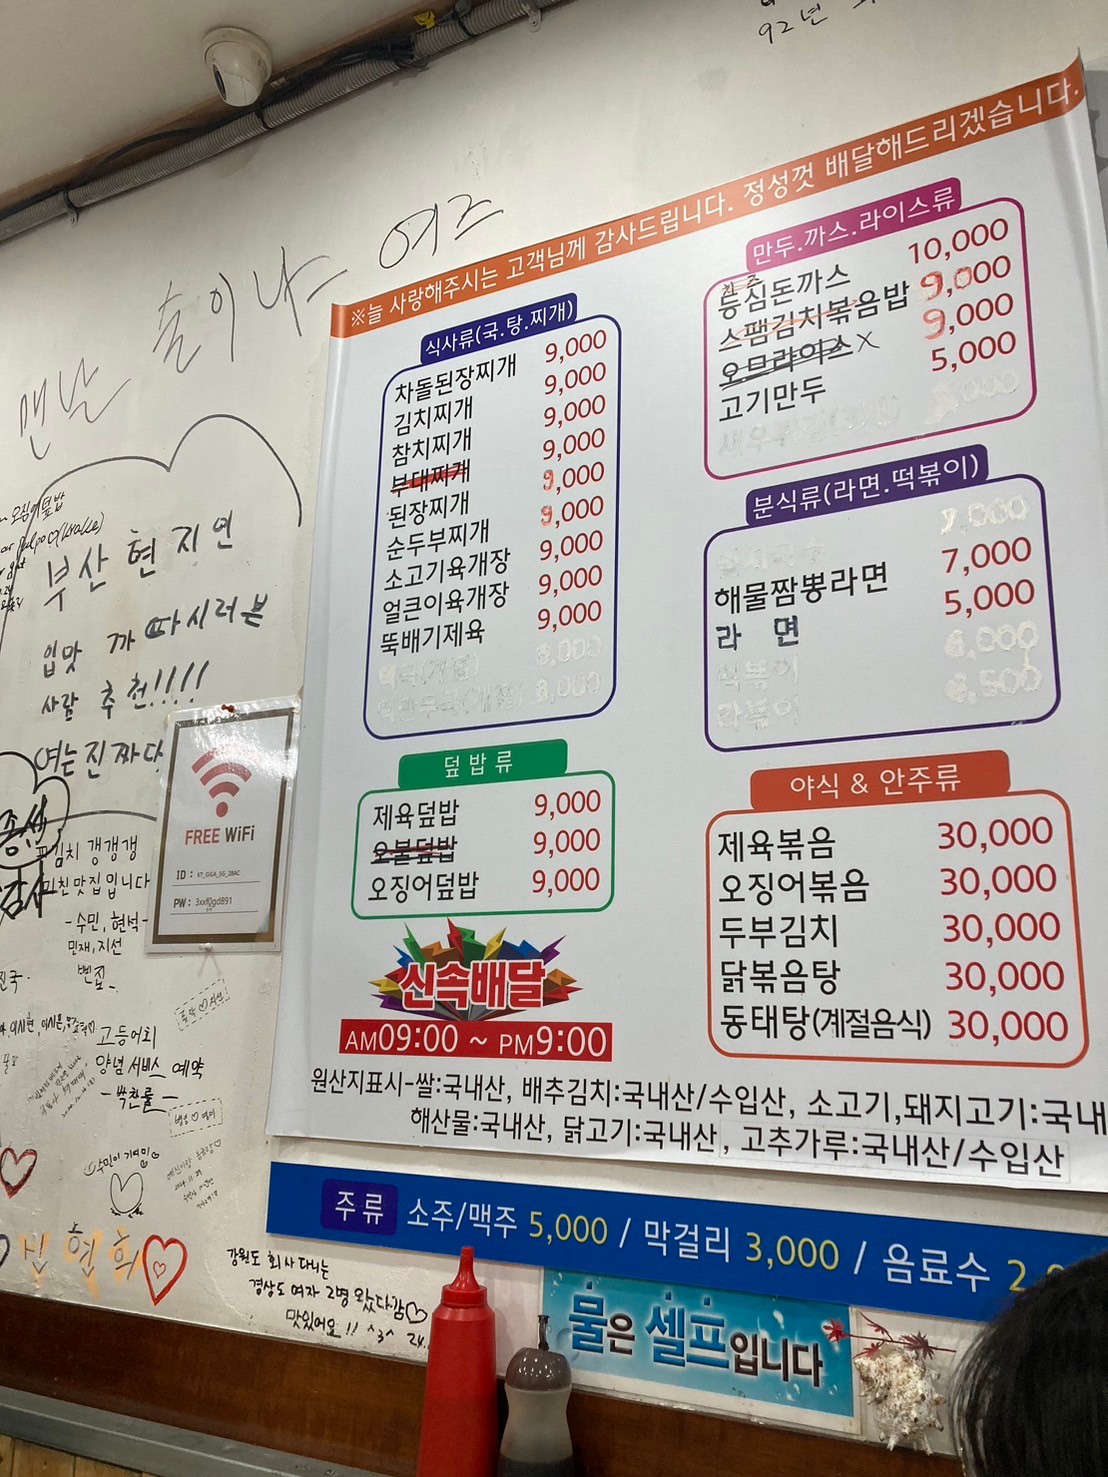 92년
맨날
술이나
여즈
부산 현지인
입맛 까다로운
사람 추천!!!!
여는 진짜다
김치 갱갱갱
미친 맛집입니다
-수민, 현석-
민재, 지선
고등어회
양념 서비스 예약
-싹찬룰-
FREE WiFi
ID : KT_GiGA_5G_28AC
PW : 3xxf0gd891
강원도 회사 다니는
경상도 여자 2명 왔다감♡
맛있어요!! ^3^ 24.
※늘 사랑해주시는 고객님께 감사드립니다. 정성껏 배달해드리겠습니다.
식사류(국.탕.찌개)
차돌된장찌개 9,000
김치찌개 9,000
참치찌개 9,000
부대찌개 9,000
된장찌개 9,000
순두부찌개 9,000
소고기육개장 9,000
얼큰이육개장 9,000
뚝배기제육 9,000
덮밥류
제육덮밥 9,000
오불덮밥 9,000
오징어덮밥 9,000
신속배달
AM09:00 ~ PM9:00
만두.까스.라이스류
등심돈까스 10,000
스팸김치볶음밥 9,000
오므라이스 X 9,000
고기만두 5,000
분식류(라면.떡볶이)
7,000
해물짬뽕라면 7,000
라 면 5,000
떡볶이 6,000
라볶이 6,500
야식 & 안주류
제육볶음 30,000
오징어볶음 30,000
두부김치 30,000
닭볶음탕 30,000
동태탕(계절음식) 30,000
원산지표시-쌀:국내산, 배추김치:국내산/수입산, 소고기,돼지고기:국내
해산물:국내산, 닭고기:국내산, 고추가루:국내산/수입산
주류 소주/맥주 5,000 / 막걸리 3,000 / 음료수 2,0
물은 셀프입니다